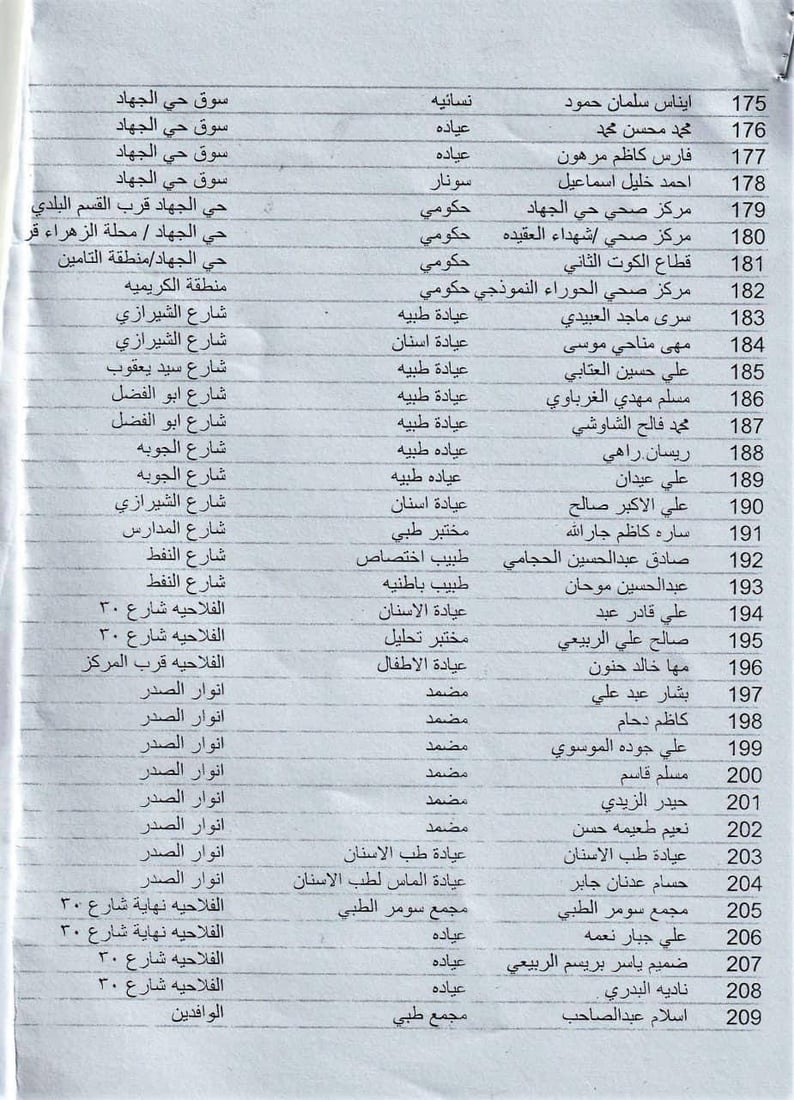 175 ايناس سلمان حمود نسائيه سوق حي الجهاد
176 محمد محسن محمد عياده سوق حي الجهاد
177 فارس كاظم مرهون عياده سوق حي الجهاد
178 احمد خليل اسماعيل سونار سوق حي الجهاد
179 مركز صحي حي الجهاد حكومي حي الجهاد قرب القسم البلدي
180 مركز صحي /شهداء العقيده حكومي حي الجهاد / محلة الزهراء قر
181 قطاع الكوت الثاني حكومي حي الجهاد/منطقة التامين
182 مركز صحي الحوراء النموذجي حكومي منطقة الكريميه
183 سرى ماجد العبيدي عيادة طبيه شارع الشيرازي
184 مهى مناحي موسى عيادة اسنان شارع الشيرازي
185 علي حسين العتابي عيادة طبيه شارع سيد يعقوب
186 مسلم مهدي الغرباوي عيادة طبيه شارع ابو الفضل
187 محمد فالح الشاوشي عيادة طبيه شارع ابو الفضل
188 ريسان راهي عياده طبيه شارع الجوبه
189 علي عيدان عياده طبيه شارع الجوبه
190 علي الاكبر صالح عيادة اسنان شارع الشيرازي
191 ساره كاظم جارالله مختبر طبي شارع المدارس
192 صادق عبدالحسين الحجامي طبيب اختصاص شارع النفط
193 عبدالحسين موحان طبيب باطنيه شارع النفط
194 علي قادر عبد عيادة الاسنان الفلاحيه شارع ٣٠
195 صالح علي الربيعي مختبر تحليل الفلاحيه شارع ٣٠
196 مها خالد حنون عيادة الاطفال الفلاحيه قرب المركز
197 بشار عبد علي مضمد انوار الصدر
198 كاظم دحام مضمد انوار الصدر
199 علي جوده الموسوي مضمد انوار الصدر
200 مسلم قاسم مضمد انوار الصدر
201 حيدر الزيدي مضمد انوار الصدر
202 نعيم طعيمه حسن مضمد انوار الصدر
203 عيادة طب الاسنان عيادة طب الاسنان انوار الصدر
204 حسام عدنان جابر عيادة الماس لطب الاسنان انوار الصدر
205 مجمع سومر الطبي مجمع سومر الطبي الفلاحيه نهاية شارع ٣٠
206 علي جبار نعمه عياده الفلاحيه نهاية شارع ٣٠
207 ضميم ياسر بريسم الربيعي عياده الفلاحيه شارع ٣٠
208 ناديه البدري عياده الفلاحيه شارع ٣٠
209 اسلام عبدالصاحب مجمع طبي الوافدين